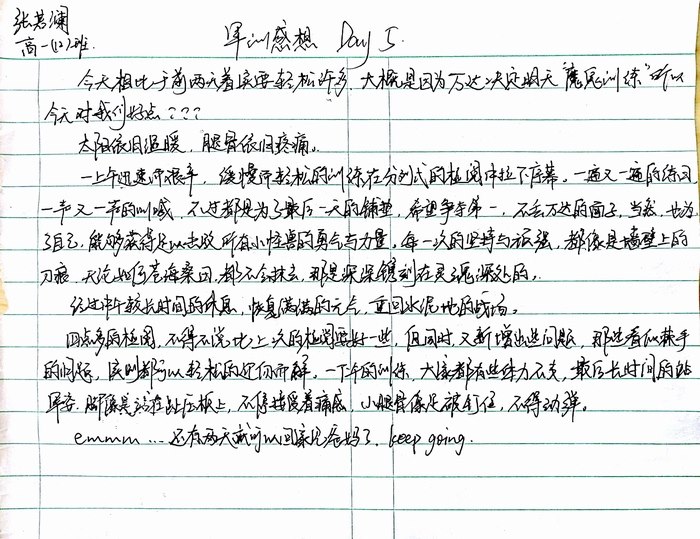 张若澜
高一(12)班
军训感想 Day 5
今天相比于前两天着实要轻松许多,大概是因为万达决定明天"魔鬼训练"所以
今天对我们好点???
太阳依旧温暖,腿骨依旧疼痛。
一上午过来很辛,缓慢而轻松的训练在分列式的检阅中拉下序幕。一遍又一遍的练习
一声又一声的呐喊,不过都是为了最后一天的铺垫,希望争夺第一,不丢万达的面子,当然,也为
了自己,能够获得足以击败所有小怪兽的勇气与力量,每一次的坚持与顽强,都像是墙壁上的
刀痕,无论如何苍海桑田,都不会抹去,那是深深镌刻在灵魂深处的。
经过中午较长时间的休息,恢复满满的元气,重回水泥地的战场。
四点多的检阅,不得不说比上次的检阅要好一些,但同时又新增出些问题,那些看似棘手
的问题,实则都可以轻松的迎刃而解。一下午的训练,大家都有些体力不支,最后长时间的站
军姿,脚像是站在趾压板上,不停接受着痛感,小腿骨像是被钉住,不得动弹。
emmm...还有两天就可以回家见爸妈了,keep going.